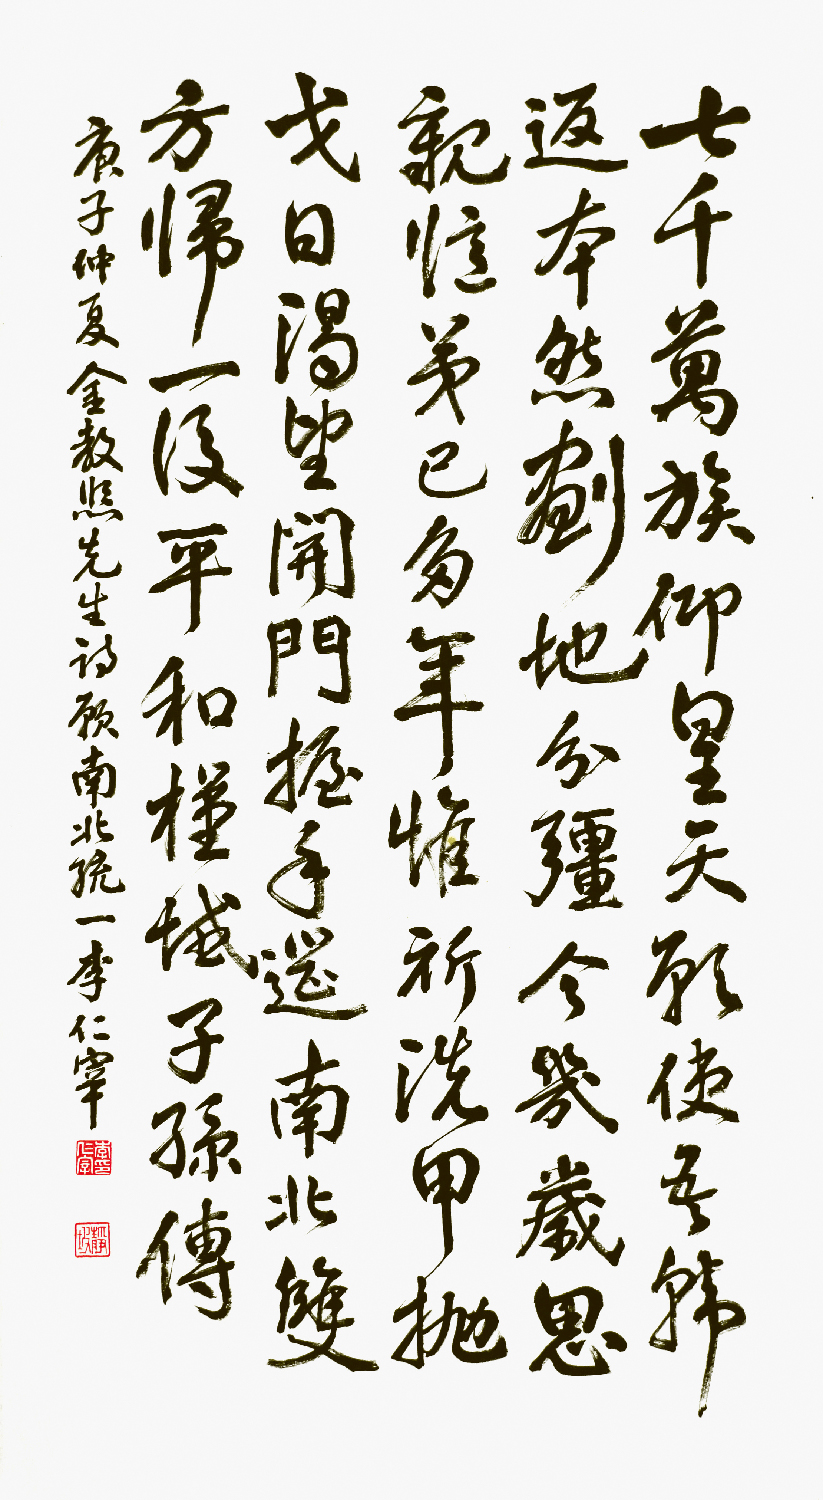 七千萬族仰皇天願使吾韓
返本然劃地分疆今幾歲思
親憶弟已多年惟祈洗甲抛
戈日渴望開門握手還南北雙
方歸一後平和槿域子孫傳
庚子仲夏金教熙先生詩願南北統一李仁宰